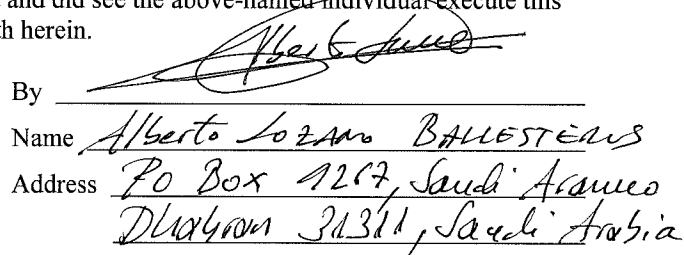 and did see the above-named individual execute this
th herein.
By Alberto
Name Alberto LOZANO BALLESTEROS
Address PO Box 1267, Saudi Aramco
Dhahran 31311, Saudi Arabia